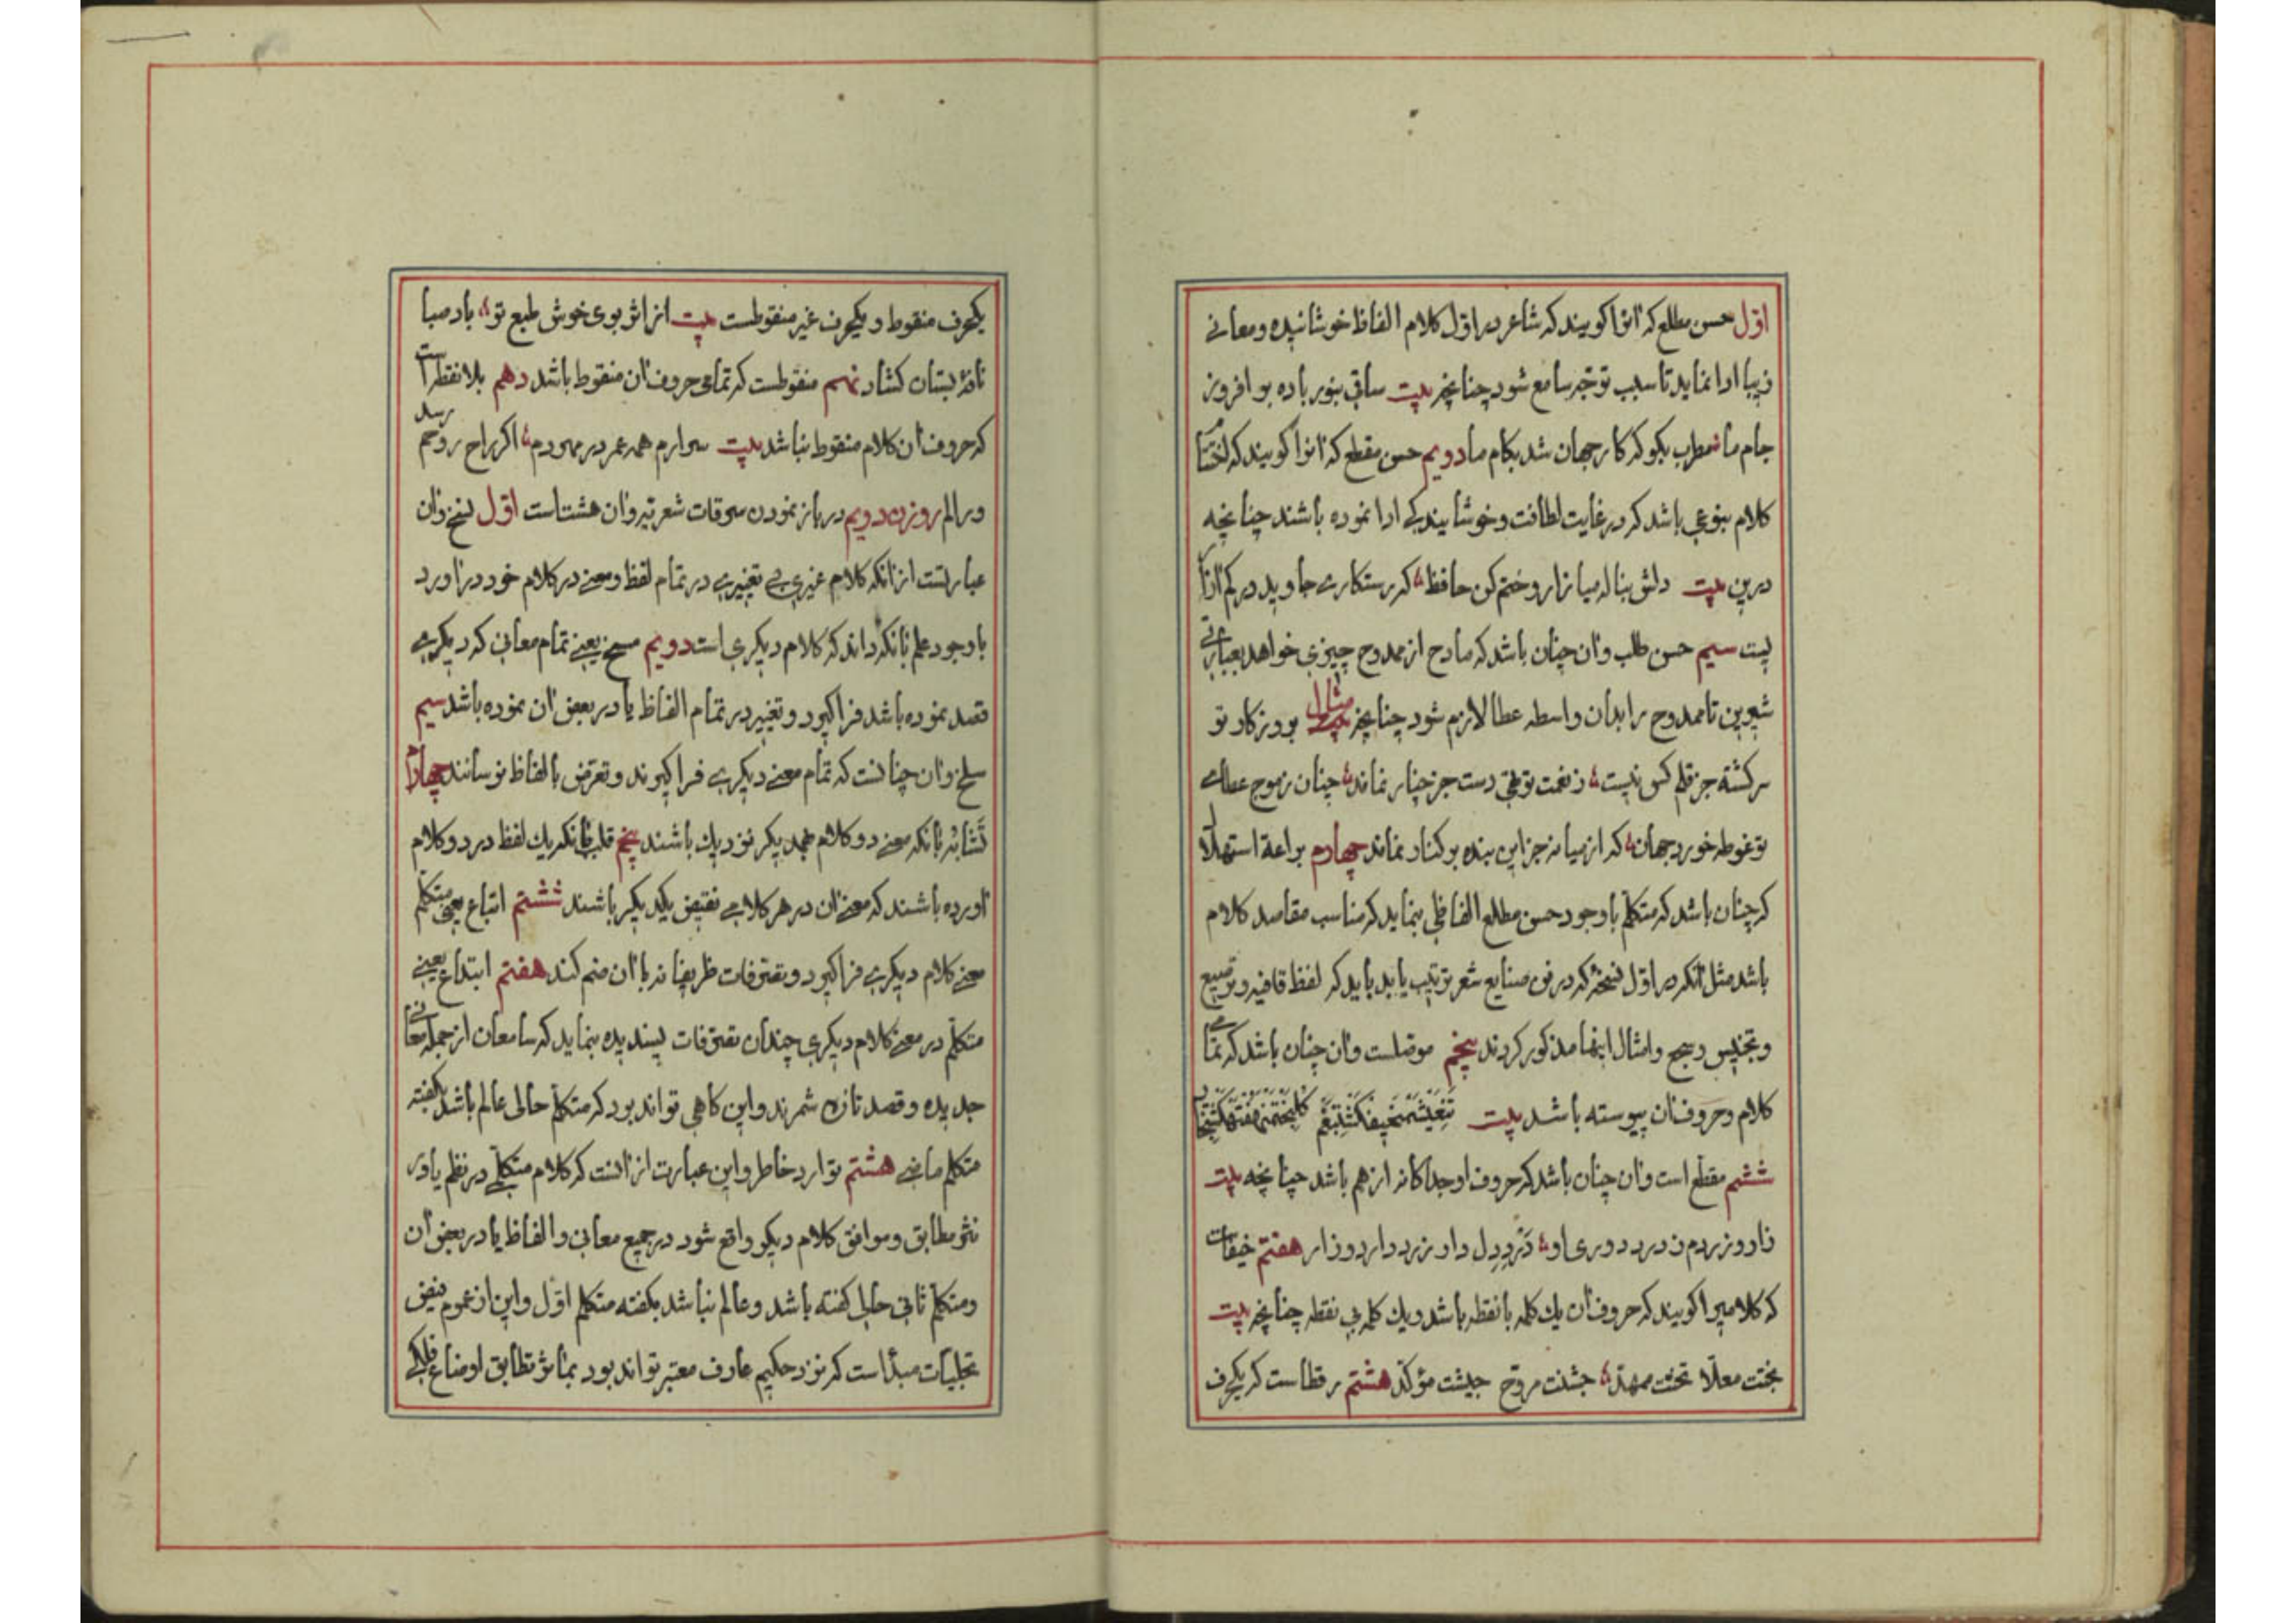 اول حسن مطلع که انرا کویند که شاعر در اول کلام الفاظ خوشاینده و معانی
زیبا ادا نماید تا سبب توجه سامع شود چنانچه بیت ساقی بنور باده بر افروز
جام ما مطرب بکو که کار جهان شد بکام ما دویم حسن مقطع که انرا کویند که
کلام بنوعی باشد که در غایت لطافت و خوشایندکی ادا نموده باشند چنانچه
درین بیت دلش بناله میازار و ختم کن حافظ که رستکاری جاوید در کم ازار
یست سیم حسن طلب و ان چنان باشد که مادح از ممدوح چیزی خواهد بعبارتی
شیرین تا ممدوح را بدان واسطه عطا لازم شود چنانچه مثال بروزکار تو
سرکشته جز قلم کس نیست ز نعمت تو تهی دست جز چنار نماند چنان ز موج عطای
تو غوطه خورد جهان که از میانه جز این بنده بر کنار نماند چهارم براعة استهلال
که چنان باشد که متکلم با وجود حسن مطلع الفاظی بنماید که مناسب مقاصد کلام
باشد مثل انکه در اول نسخهٔ که در فن صنایع شعر ترتیب یابد باید که لفظ قافیه و ترصیع
و تجنیس و سجع و امثال اینها مذکور کردند پنجم موصلست و ان چنان باشد که تمامی
کلام و حروف ان پیوسته باشد بیت
ششم مقطع است و ان چنان باشد که حروف او جداکانه از هم باشد چنانچه بیت
زار و زردم ز درد دوری او درد دل دارد زرد دارد و زار هفتم خیفاست
که کلامیرا کویند که حروف ان یك کلمه با نقطه باشد و یك کلمه بی نقطه چنانچه بیت
بختت معلا تختت ممهد جشنت مروح جیشت مؤکد هشتم رقطا ست که یکحرف
یکحرف منقوط و یکحرف غیر منقوطست بیت از اثر بوی خوش طبع تو باد صبا
نافهٔ بستان کشاد نهم منقوطست که تمامی حروف ان منقوط باشد دهم بلا نقطه است
که حروف ان کلام منقوط نباشد بیت همه عمر در اکر راح روحم رسد
در باز نمودن سرقات شعر و ان هشت است اول نسخ و ان
عبارتست از انکه کلام غیری بی تغییری در تمام لفظ و معنی در کلام خود در اورد
با وجود علم بانکه داند که کلام دیکری است دویم مسخ یعنی تمام معانی که دیکری
قصد نموده باشد فرا کیرد و تغییر در تمام الفاظ یا در بعض ان نموده باشد سیم
سلخ و ان چنانست که تمام معنی دیکری فرا کیرند و تعرض بالفاظ نرسانند چهارم
تشابه بانکه معنی دو کلام بهمدیکر نزدیك باشند پنجم قلب بانکه یك لفظ در دو کلام
اورده باشند که معنی ان در هر کلامی نقیض یکدیکر باشند ششم اتباع یعنی متکلم
معنی کلام دیکری فرا کیرد و تصرفات ظریفانه با ان ضم کند هفتم ابتداع یعنی
متکلم در معنی کلام دیکری چندان تصرفات پسندیده بنماید که سامعان از جمله معانی
جدیده و قصد تازه شمرند و این کاهی تواند بود که متکلم حالی عالم باشد بکفته
متکلم ماضی هشتم توارد خاطر و این عبارت از انست که کلام متکلمی در نظم یا در
نثر مطابق و موافق کلام دیکر واقع شود در جمیع معانی و الفاظ یا در بعض ان
و متکلم ثانی حالی کفته باشد و عالم نباشد بکفته متکلم اول و این از عموم فیض
تجلیات مبدأ است که نزد حکیم عارف معتبر تواند بود بمأثر تطابق اوضاع فلکی